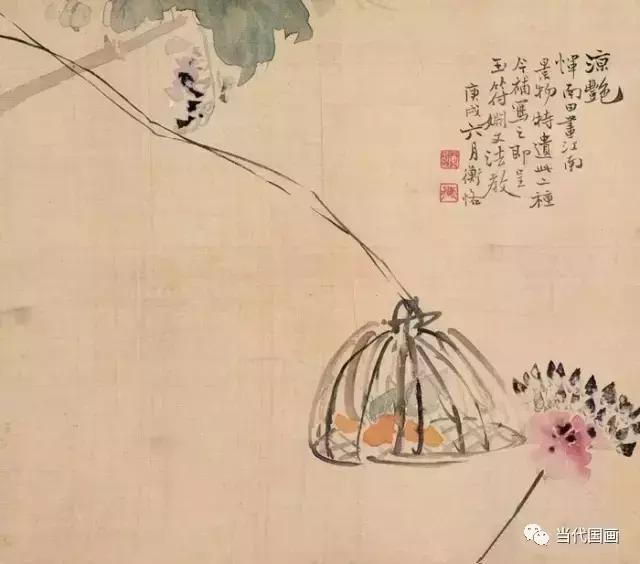 涼艷
惲南田畫江南
景物特遺此二種
今補寫之即呈
玉符姻丈法教
庚戌六月衡恪
当代国画